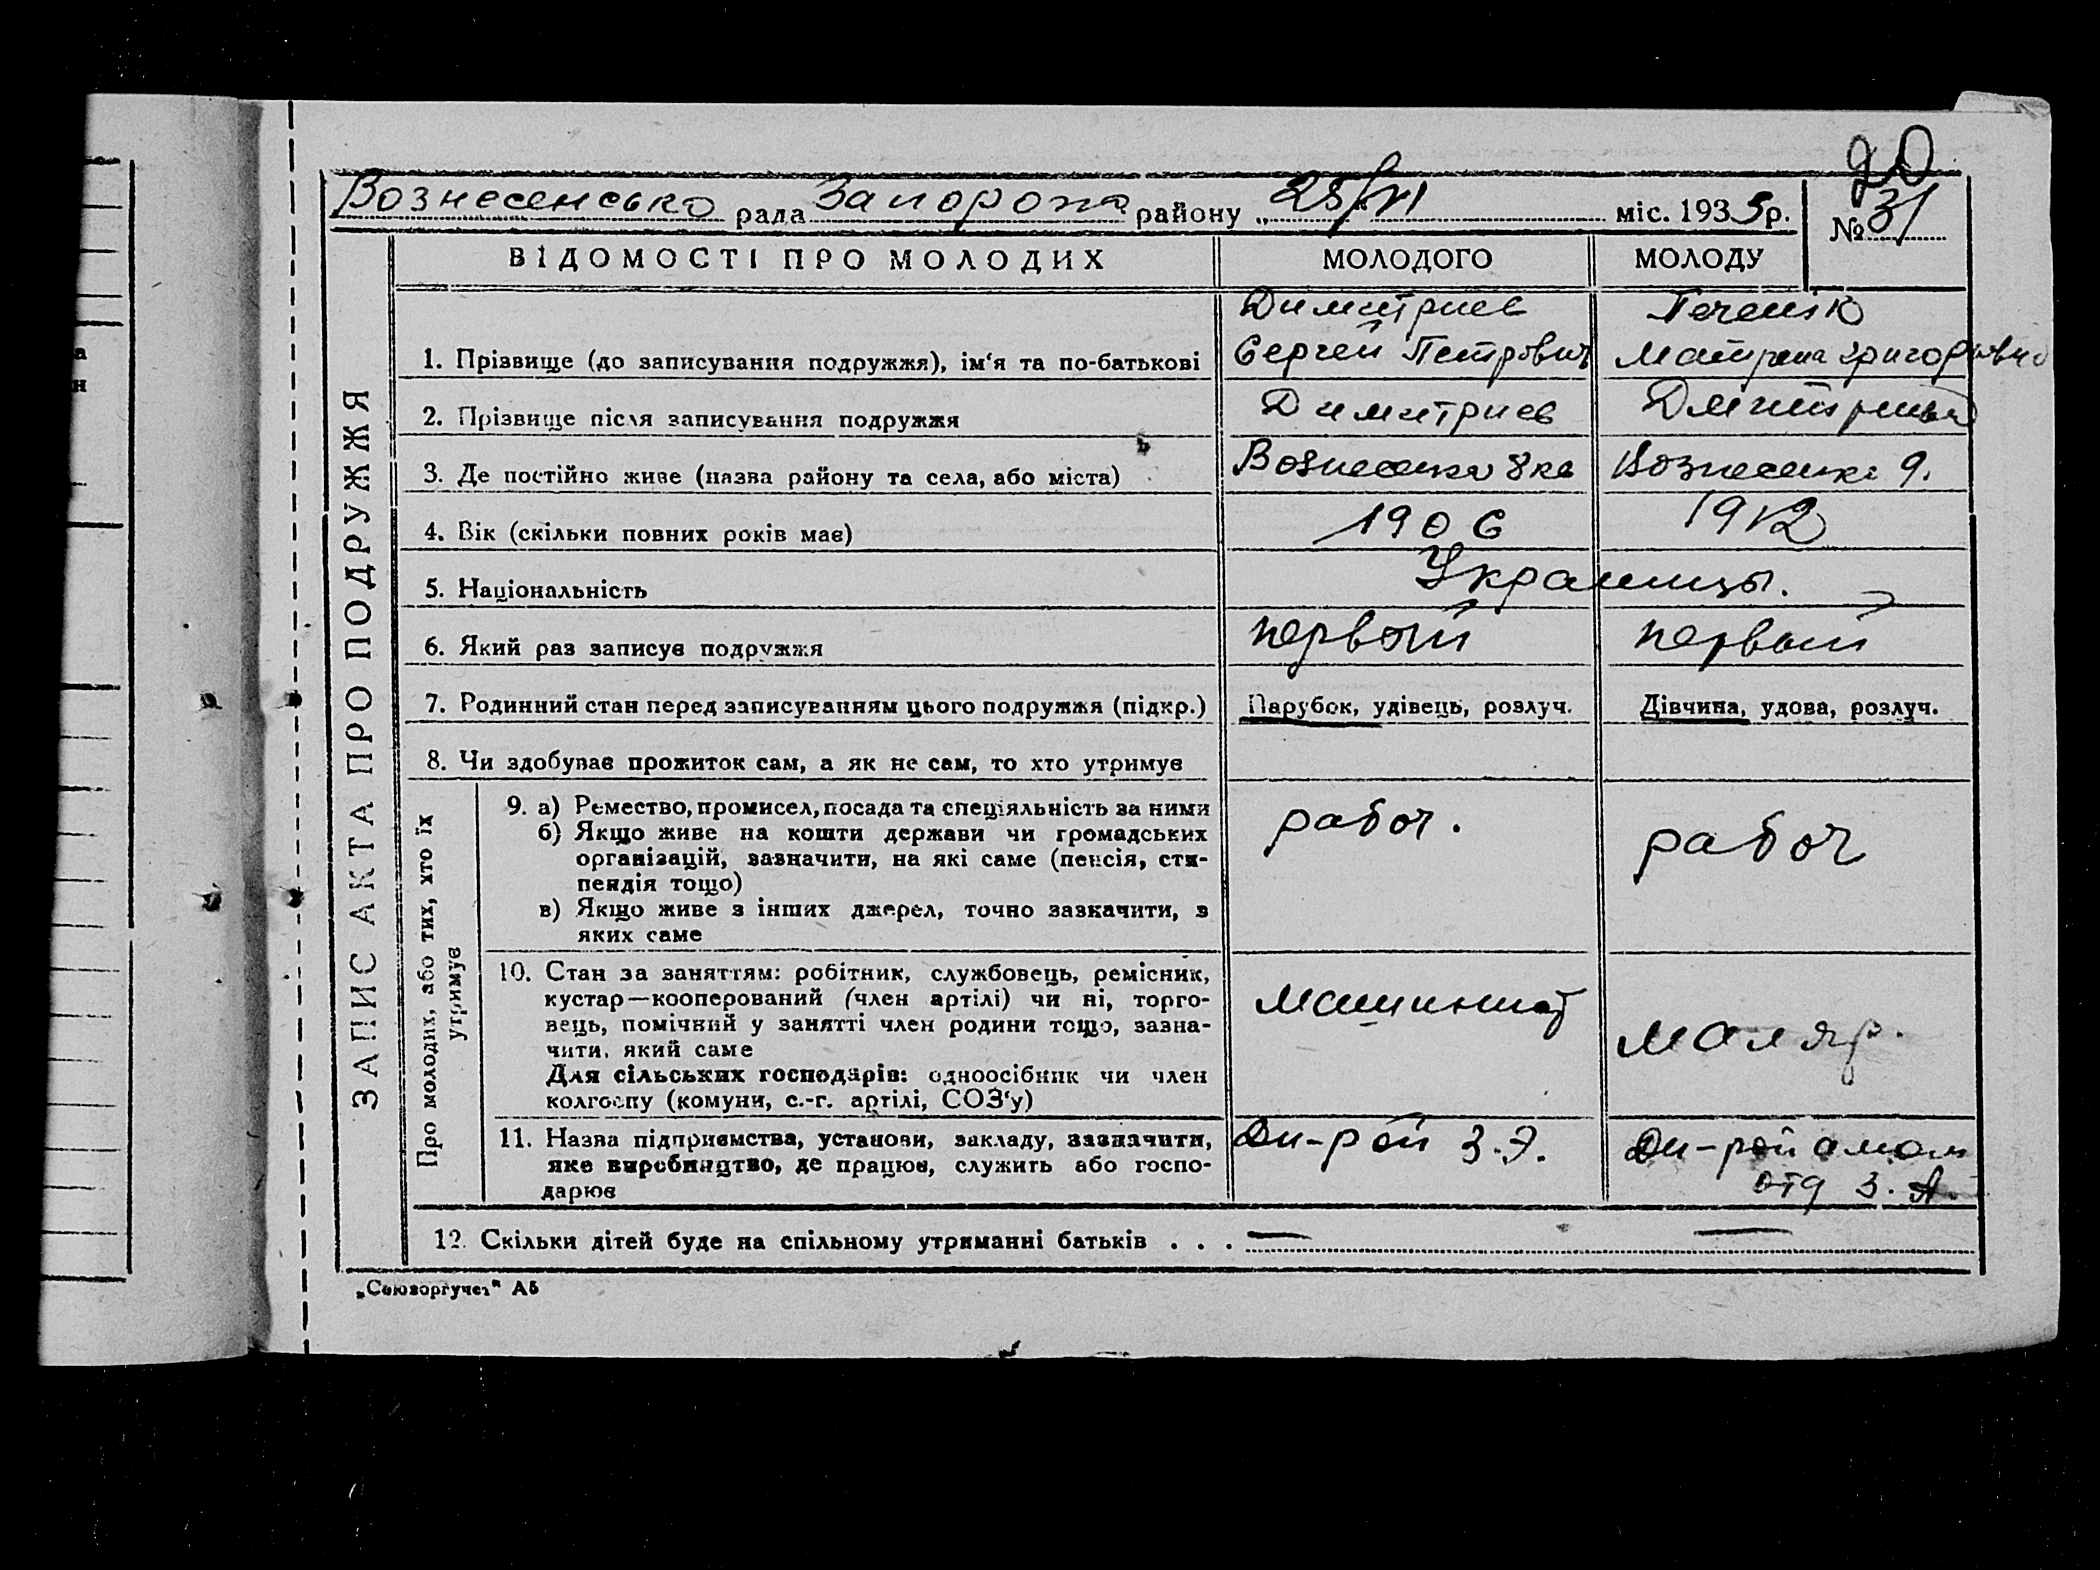 20
Вознесенсько рада Запорожа району „ 25/VI міс. 1935р. № 31
ВІДОМОСТІ ПРО МОЛОДИХ МОЛОДОГО МОЛОДУ
ЗАПИС АКТА ПРО ПОДРУЖЖЯ
Димитриев
1. Прізвище (до записування подружжя), ім‘я та по-батькові Сергей Петрович Матрена Григорьевна
2. Прізвище після записування подружжя Димитриев
3. Де постійно живе (назва району та села, або міста) Вознесенка 8 Вознесенка 9.
4. Вік (скільки повних років має) 1906 1912
5. Національність Украинцы.
6. Який раз записує подружжя первый первый
7. Родинний стан перед записуванням цього подружжя (підкр.) Парубок, удівець, розлуч. Дівчина, удова, розлуч.
8. Чи здобував прожиток сам, а як не сам, то хто утримує
Про молодих, або тих, хто їх
утримує
9. а) Ремество, промисел, посада та спеціяльність за ними рабоч. рабоч
б) Якщо живе на кошти держави чи громадських
організацій, зазначити, на які саме (пенсія, сти-
пендія тощо)
в) Якщо живе з інших джерел, точно зазначити, з
яких саме
10. Стан за заняттям: робітник, службовець, ремісник,
кустар—кооперований (член артілі) чи ні, торго- машинист
вець, помічний у занятті член родини тощо, зазна- маляр.
чити, який саме
Для сільських господарів: одноосібник чи член
колгоспу (комуни, с.-г. артілі, СОЗ‘у)
11. Назва підприємства, установи, закладу, зазначити, Дн-рой З.Э. Дн-рой
яке виробництво, де працює, служить або госпо- отд З. А.
дарює
12. Скільки дітей буде на спільному утриманні батьків . . . — —
„Союзоргучет" А5